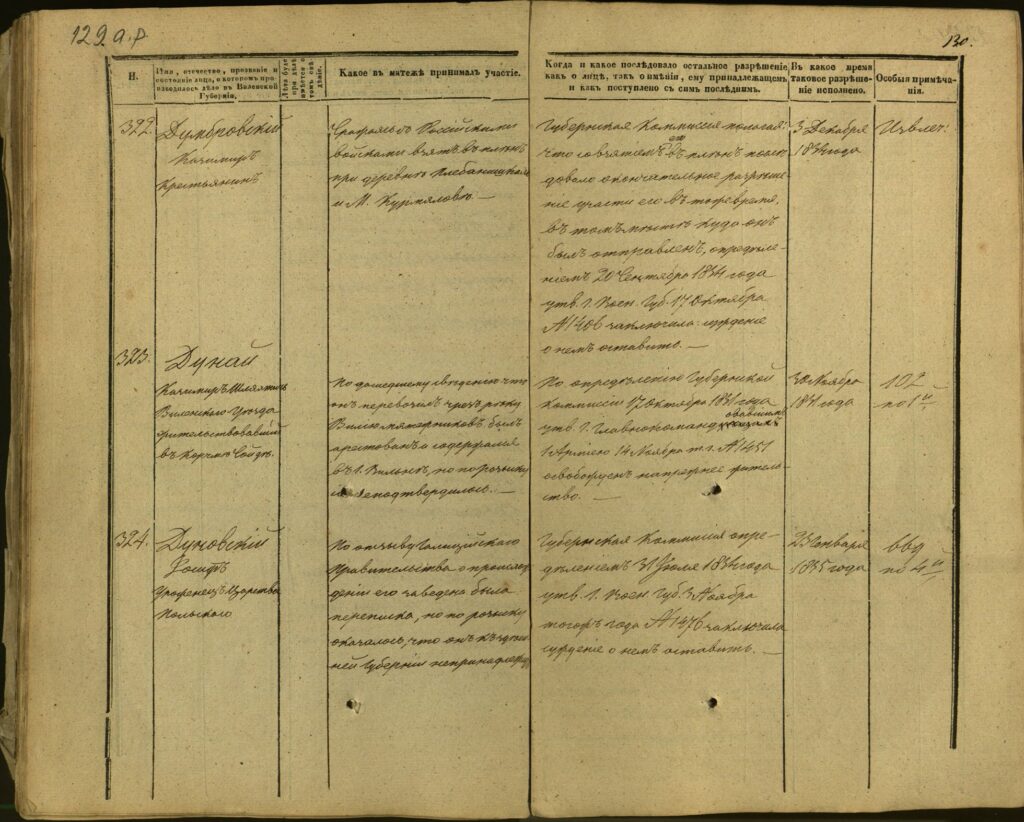 129 а.р
130.
Н.
Имя, отчество, прозваніе и
состояніе лица, о которомъ про-
изводилось дѣло въ Виленской
Губерніи.
Какое въ мятежѣ принималъ участіе.
Когда и какое послѣдовало остальное разрѣшеніе,
какъ о лицѣ, такъ о имѣніи, ему принадлежащемъ
и какъ поступлено съ симъ послѣднимъ.
Въ какое время
таковое разрѣше-
ніе исполнено.
Особыя примѣча-
нія.
322.
Думбровскій
Казимиръ
Крестьянинъ
Сражаясь съ Россійскими
войсками взятъ въ плѣнъ
при деревнѣ
и М.
Губернская Коммисія полагая:
что со взятіемъ его въ плѣнъ послѣ-
довало окончательное разрѣше-
ніе участи его въ тоже время,
въ томъ мѣстѣ куда онъ
былъ отправленъ, опредѣле-
ніемъ 20 Сентября 1834 года
утв. Г. Воен. Губ. 17 Октября
№ 1406 заключила: сужденіе
о немъ оставить. —
3 Декабря
1834 года
Извлеч:
323.
Дунай
Казимиръ Шляхтичъ
Виленскаго Уѣзда
жительствовавшій
въ Корчмѣ
По дошедшему свѣденію что
онъ перевозилъ чрезъ рѣку
Вилію мятежниковъ, былъ
арестованъ и содержался
въ г. Вильнѣ, но по розыску
сіе неподтвердилось. —
По опредѣленію Губернской
Коммисіи 17 Октября 1831 года
утв. Г. Главнокоманд овавшимъ
1 Арміею 14 Ноября т. г. № 1451
освобожденъ на прежнее житель-
ство. —
30 Ноября
1831 года
102
по 1й
324.
Дуновскій
Іосифъ
Уроженецъ Царства
Польскаго
По отзыву Галиційскаго
Правительства о происхож-
деніи его заведена была
переписка, но по розыску
оказалось, что онъ къ здѣш-
ней Губерніи непринадлежитъ
Губернская Коммисія опре-
дѣленіемъ 31 Іюля 1834 года
утв. Г. Воен. Губ. 3 Ноября
того жъ года № 1476 заключила
сужденіе о немъ оставить. —
23 Января
1835 года
по 4й